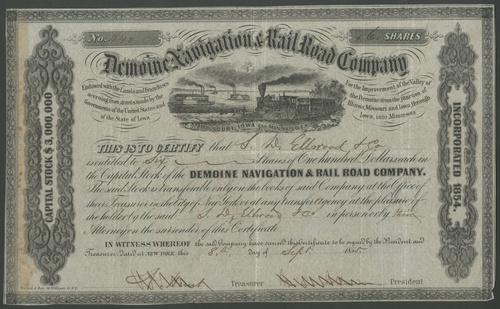 No.
6 SHARES
Demoine Navigation & Rail Road Company
Endowed with the Lands and Franchises
accruing from grants made by the
Governments of the United States and
of the State of Iowa
For the Improvement of the Valley of
the Demoine from the junction of
Illinois, Missouri and Iowa, through
Iowa, into Minnesota
MISSOURI, IOWA AND MINNESOTA
CAPITAL STOCK $3,000,000
INCORPORATED 1854.
THIS IS TO CERTIFY that S. D. Ellwood & Co
is entitled to Six Shares of One hundred Dollars each in
the Capital Stock of the DEMOINE NAVIGATION & RAIL ROAD COMPANY.
The said Stock is transferable only on the books of said Company at the Office of
their Treasurer in the City of New York or at any transfer Agency at the pleasure of
the holder by the said S. D. Ellwood & Co in person or by their
Attorney on the surrender of this Certificate
IN WITNESS WHEREOF the said Company have caused this certificate to be signed by the President and
Treasurer, dated at NEW YORK, this 8th day of Sept 185
Treasurer
President